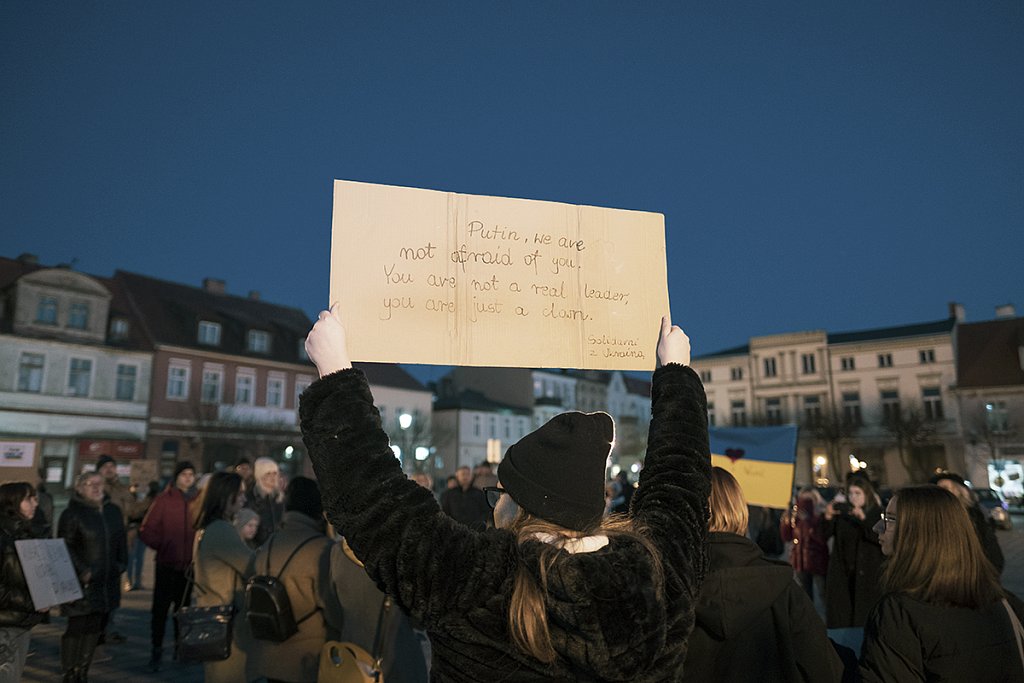 Putin, we are
not afraid of you.
You are not a real leader,
you are just a clown.
Solidarni
z Ukrainą